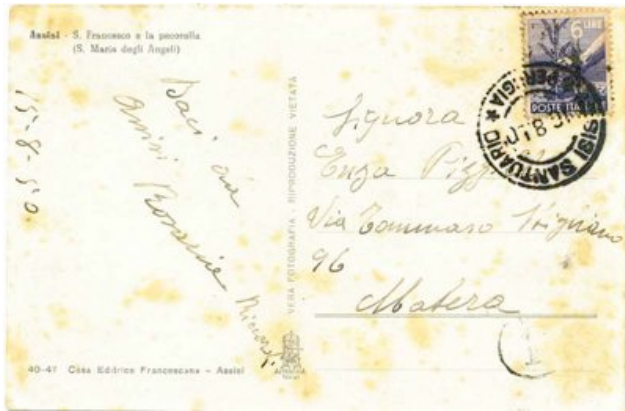 Assisi - S. Francesco e la pecorella
(S. Maria degli Angeli)
15-8-50.
Baci da
Assisi
VERA FOTOGRAFIA - RIPRODUZIONE VIETATA
40-47 Casa Editrice Francescana - Assisi
6 LIRE
POSTE ITALIANE
ASSISI SANTUARIO
Signora
Enza
Via Tommaso Stigliano
96
Matera
T